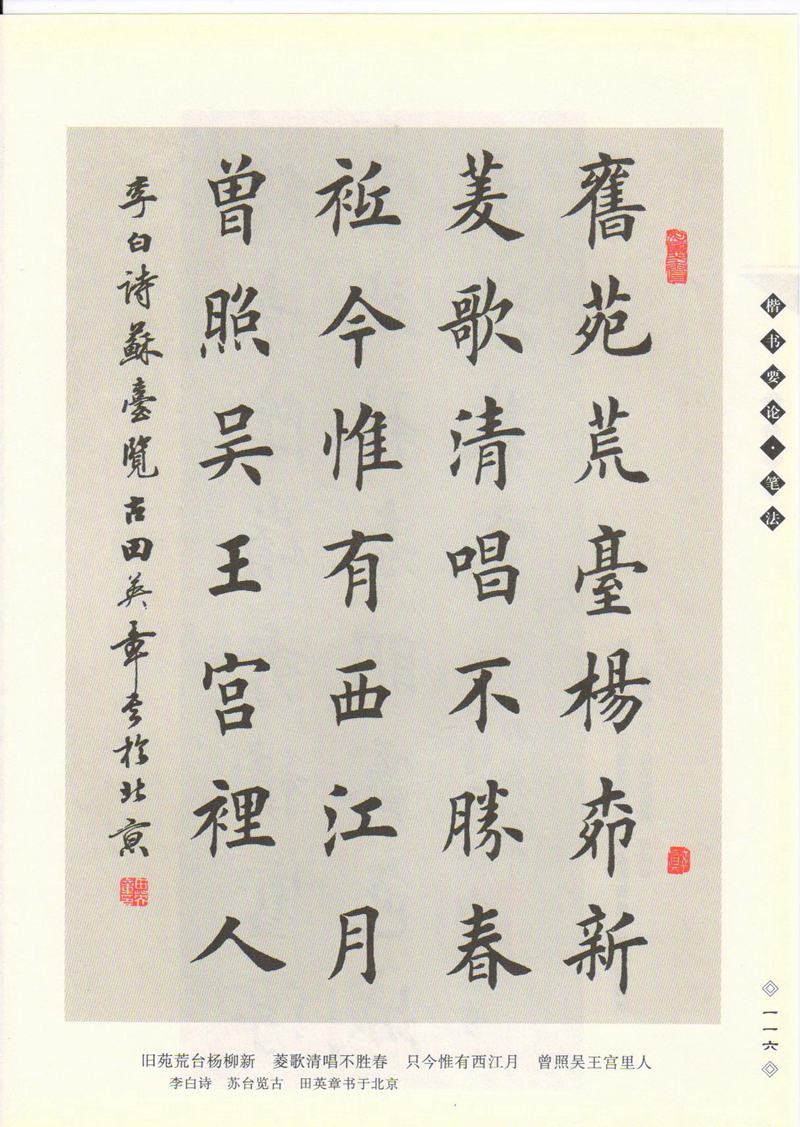 舊苑荒臺楊桺新
菱歌清唱不勝春
祗今惟有西江月
曾照吴王宫裡人
李白诗蘇臺覽古田英章书於北京
楷书要论·笔法
一一六
旧苑荒台杨柳新 菱歌清唱不胜春 只今惟有西江月 曾照吴王宫里人
李白诗 苏台览古 田英章书于北京